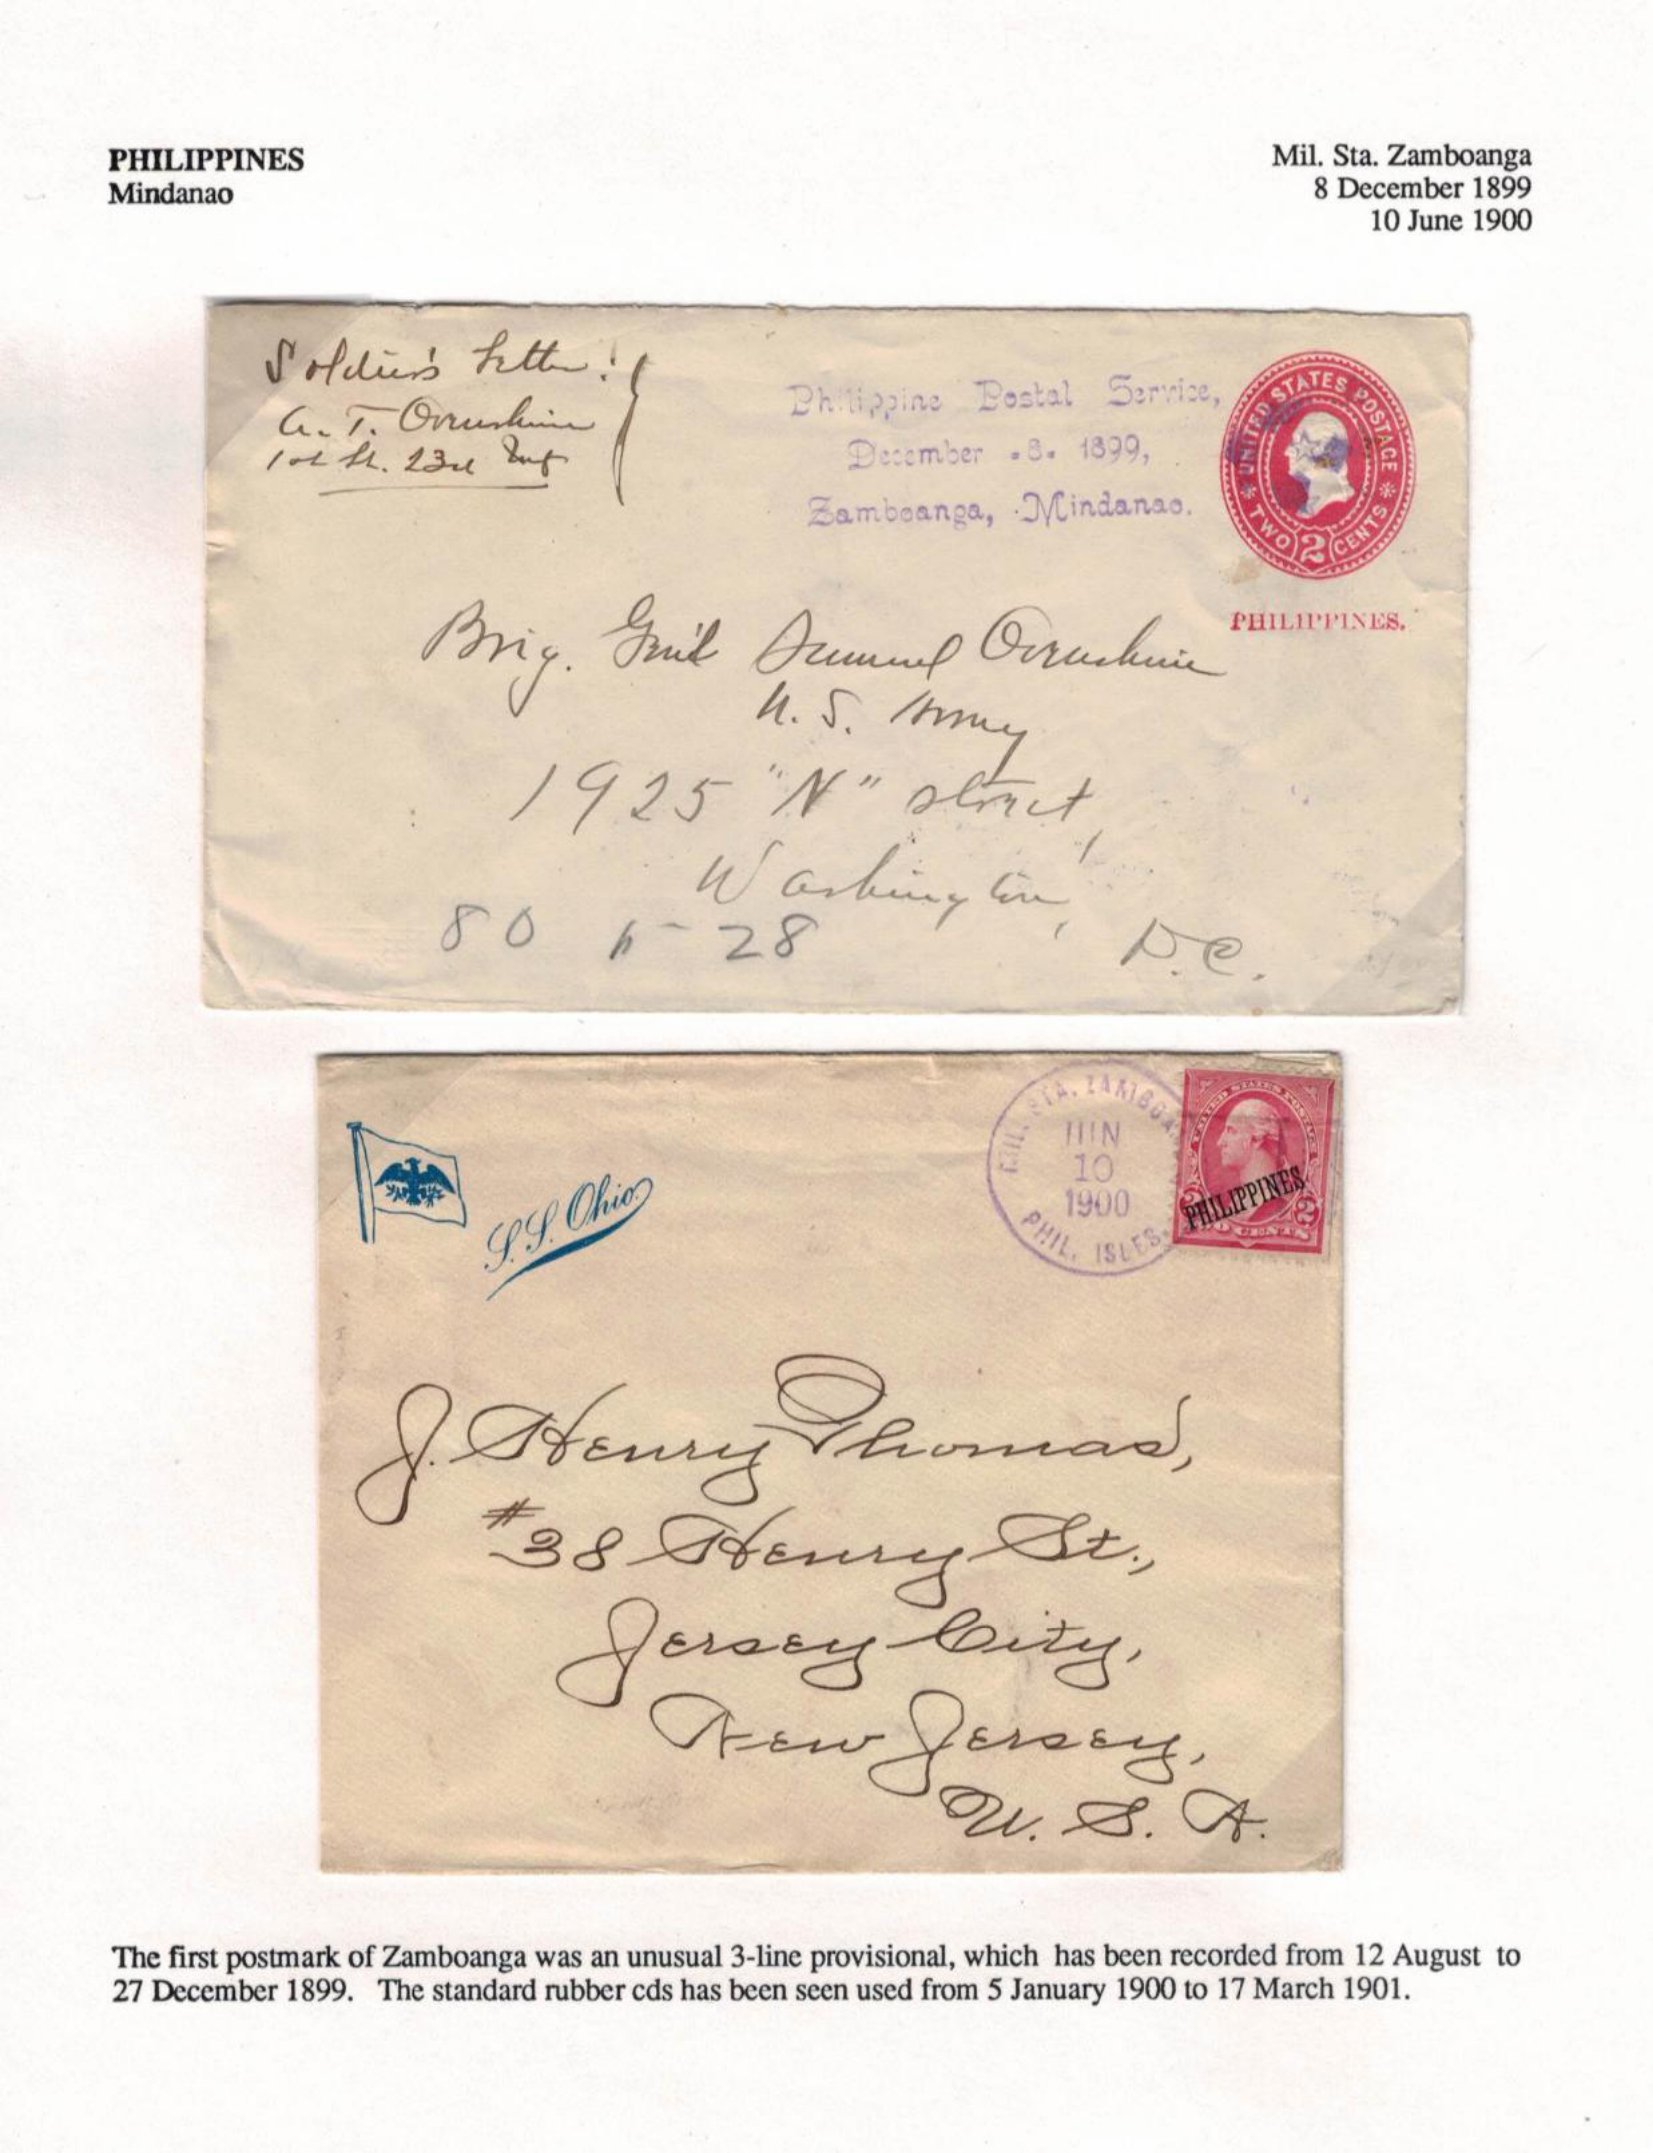 PHILIPPINES
Mindanao
Mil. Sta. Zamboanga
8 December 1899
10 June 1900
Soldier's Letter!
A. T. Ovenshine
1st Lt. 23rd Inf
Philippine Postal Service,
December .8. 1899,
Zamboanga, Mindanao.
UNITED STATES POSTAGE
TWO 2 CENTS
PHILIPPINES.
Brig. Gen'l Samuel Ovenshine
U. S. Army
1925 "N" street,
Washington,
D.C.
80 28
S.S. Ohio
MIL. STA. ZAMBOANGA
JUN
10
1900
PHIL. ISLES.
UNITED STATES POSTAGE
PHILIPPINES
2 2
J. Henry Thomas,
#38 Henry St.,
Jersey City,
New Jersey,
U. S. A.
The first postmark of Zamboanga was an unusual 3-line provisional, which has been recorded from 12 August to
27 December 1899. The standard rubber cds has been seen used from 5 January 1900 to 17 March 1901.